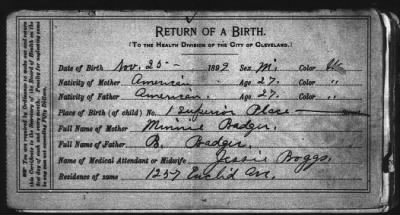 RETURN OF A BIRTH.
(TO THE HEALTH DIVISION OF THE CITY OF CLEVELAND.)
Date of Birth Nov. 25 - 1892 Sex M. Color
Nativity of Mother American Age 27. Color "
Nativity of Father American. Age 27. Color "
Place of Birth (of child) No. 1 Superior Place Street
Full Name of Mother Minnie Badger.
Full Name of Father B. Badger.
Name of Medical Attendant or Midwife Jessie Boggs.
Residence of same 1257 Euclid Av.